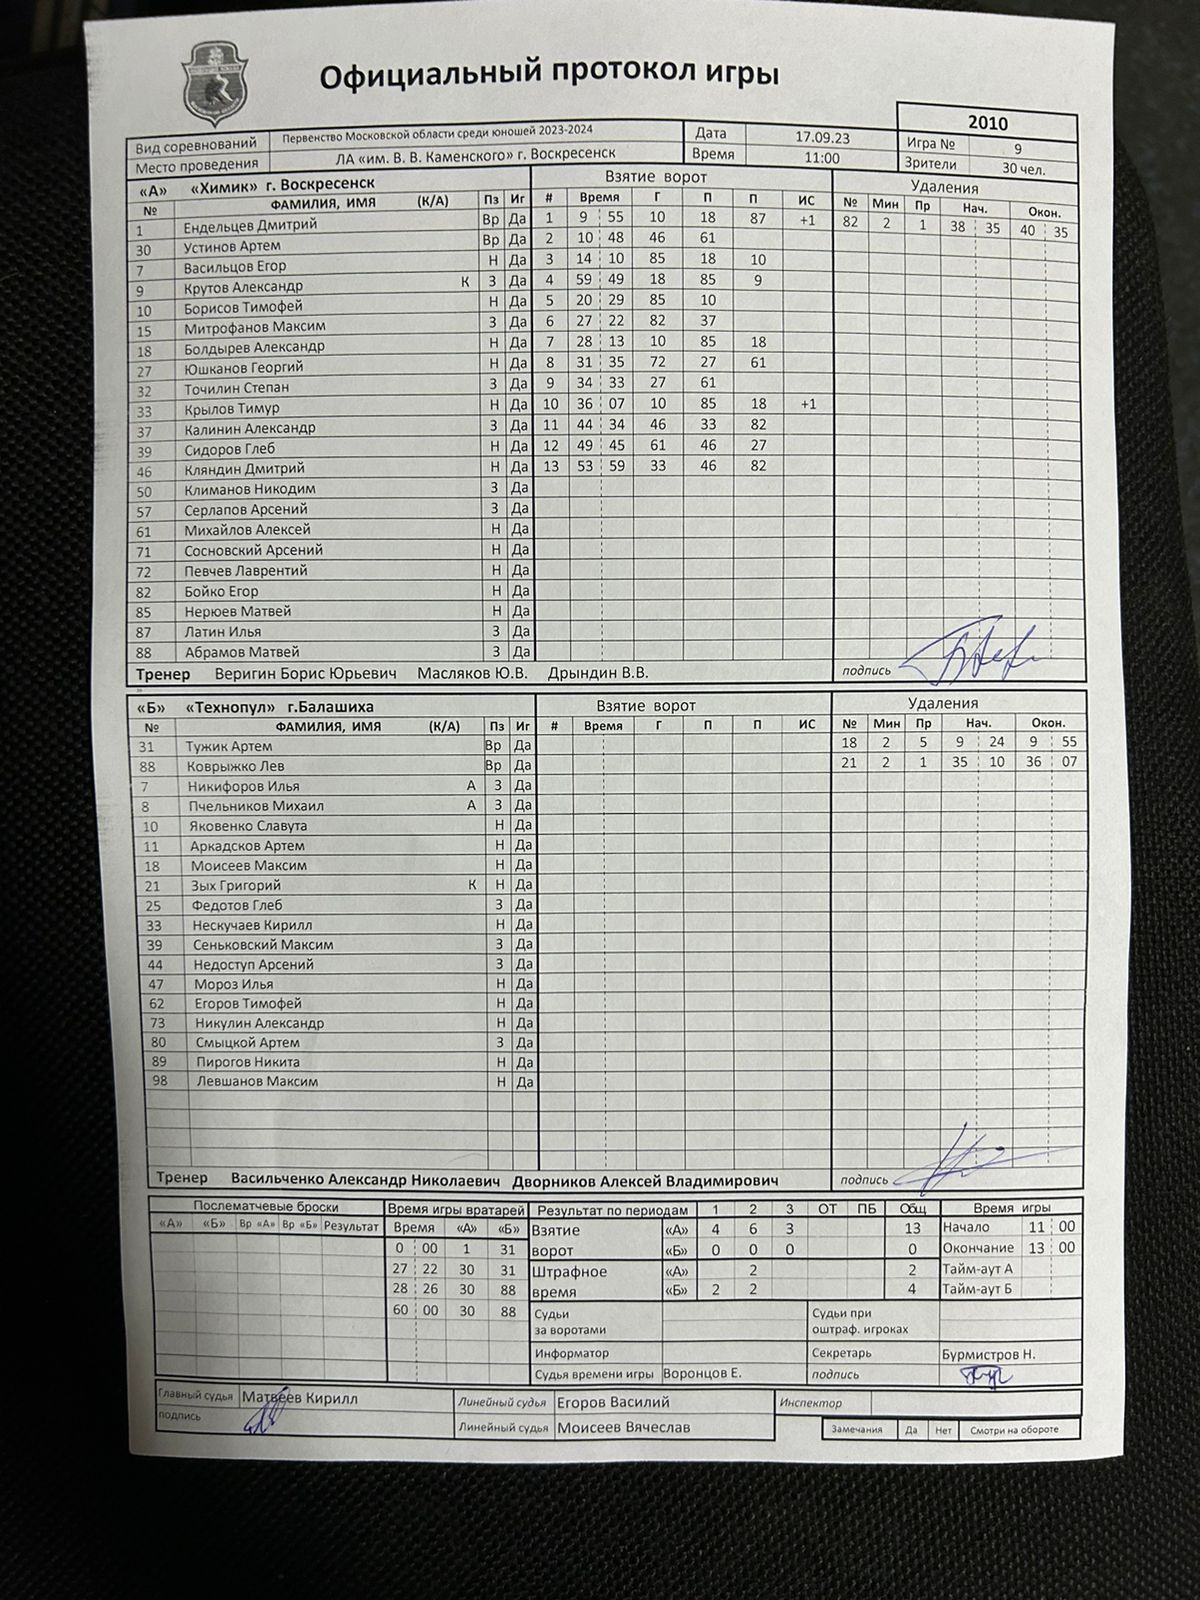 Официальный протокол игры
2010
Вид соревнований Первенство Московской области среди юношей 2023-2024 Дата 17.09.23 Игра № 9
Место проведения ЛА «им. В. В. Каменского» г. Воскресенск Время 11:00 Зрители 30 чел.
«А» «Химик» г. Воскресенск Взятие ворот Удаления
№ ФАМИЛИЯ, ИМЯ (К/А) Пз Иг # Время Г П П ИС № Мин Пр Нач. Окон.
1 Ендельцев Дмитрий Вр Да 1 9 55 10 18 87 +1 82 2 1 38 35 40 35
30 Устинов Артем Вр Да 2 10 48 46 61
7 Васильцов Егор Н Да 3 14 10 85 18 10
9 Крутов Александр К З Да 4 59 49 18 85 9
10 Борисов Тимофей Н Да 5 20 29 85 10
15 Митрофанов Максим З Да 6 27 22 82 37
18 Болдырев Александр Н Да 7 28 13 10 85 18
27 Юшканов Георгий Н Да 8 31 35 72 27 61
32 Точилин Степан З Да 9 34 33 27 61
33 Крылов Тимур Н Да 10 36 07 10 85 18 +1
37 Калинин Александр З Да 11 44 34 46 33 82
39 Сидоров Глеб Н Да 12 49 45 61 46 27
46 Кляндин Дмитрий Н Да 13 53 59 33 46 82
50 Климанов Никодим З Да
57 Серлапов Арсений З Да
61 Михайлов Алексей Н Да
71 Сосновский Арсений Н Да
72 Певчев Лаврентий Н Да
82 Бойко Егор Н Да
85 Нерюев Матвей Н Да
87 Латин Илья З Да
88 Абрамов Матвей З Да
Тренер Веригин Борис Юрьевич Масляков Ю.В. Дрындин В.В. подпись
«Б» «Технопул» г.Балашиха Взятие ворот Удаления
№ ФАМИЛИЯ, ИМЯ (К/А) Пз Иг # Время Г П П ИС № Мин Пр Нач. Окон.
31 Тужик Артем Вр Да 18 2 5 9 24 9 55
88 Коврыжко Лев Вр Да 21 2 1 35 10 36 07
7 Никифоров Илья А З Да
8 Пчельников Михаил А З Да
10 Яковенко Славута Н Да
11 Аркадсков Артем Н Да
18 Моисеев Максим Н Да
21 Зых Григорий К Н Да
25 Федотов Глеб З Да
33 Нескучаев Кирилл Н Да
39 Сеньковский Максим З Да
44 Недоступ Арсений З Да
47 Мороз Илья Н Да
62 Егоров Тимофей Н Да
73 Никулин Александр Н Да
80 Смыцкой Артем З Да
89 Пирогов Никита Н Да
98 Левшанов Максим Н Да
Тренер Васильченко Александр Николаевич Дворников Алексей Владимирович подпись
Послематчевые броски Время игры вратарей Результат по периодам 1 2 3 ОТ ПБ Общ Время игры
«А» «Б» Вр «А» Вр «Б» Результат Время «А» «Б» Взятие «А» 4 6 3 13 Начало 11 00
0 00 1 31 ворот «Б» 0 0 0 0 Окончание 13 00
27 22 30 31 Штрафное «А» 2 2 Тайм-аут А
28 26 30 88 время «Б» 2 2 4 Тайм-аут Б
60 00 30 88 Судьи за воротами Судьи при оштраф. игроках
Информатор Секретарь Бурмистров Н.
Судья времени игры Воронцов Е. подпись
Главный судья Матвеев Кирилл Линейный судья Егоров Василий Инспектор
подпись Линейный судья Моисеев Вячеслав Замечания Да Нет Смотри на обороте